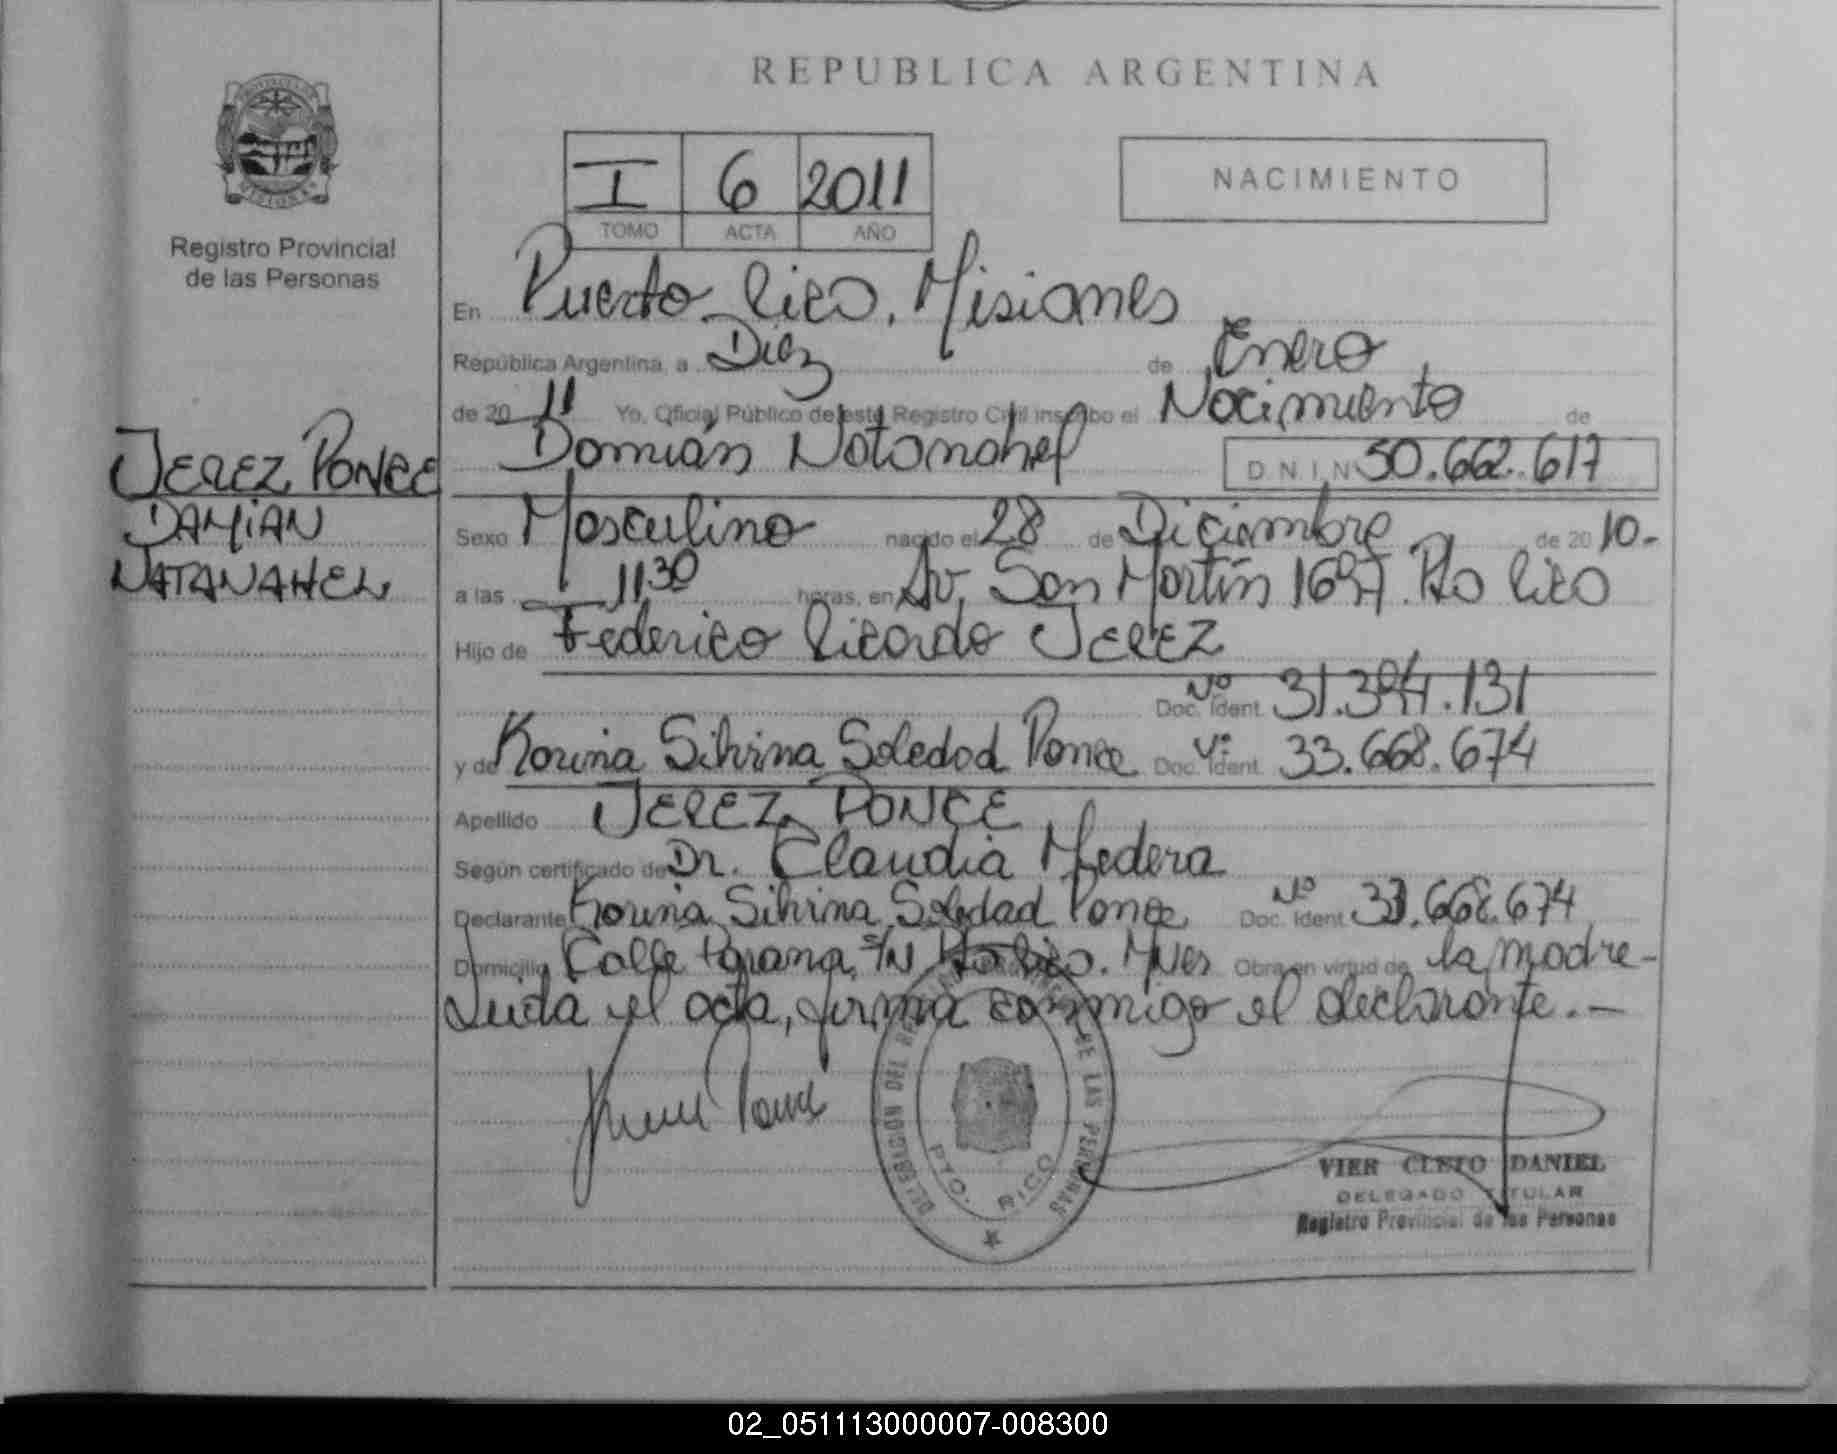 REPUBLICA ARGENTINA
I 6 2011
TOMO ACTA AÑO
NACIMIENTO
Registro Provincial
de las Personas
JEREZ PONCE
DAMIAN
NATANAHEL
En Puerto Rico, Misiones
República Argentina, a Diez de Enero
de 2011 Yo, Oficial Público de este Registro Civil inscribo el Nacimiento de
Damián Natanahel D.N.I. Nº 50.662.617
Sexo Masculino nacido el 28 de Diciembre de 2010.-
a las 11 30 horas, en Av. San Martín 1697. Pto Rico
Hijo de Federico Ricardo JEREZ
Nº
Doc. Ident. 31.394.131
y de Korina Silvina Soledad Ponce Doc. Ident. Nº 33.668.674
Apellido JEREZ PONCE
Según certificado de Dr. Claudia Medera
Declarante Korina Silvina Soledad Ponce Doc. Ident. Nº 33.668.674
Domicilio Calle Parana, S/N Pto Rico. Mnes Obra en virtud de la madre-
Leida el acta, firma conmigo el declarante.-
DELEGACION DEL REGISTRO DE LAS PERSONAS
PTO. RICO
VIER CLETO DANIEL
DELEGADO TITULAR
Registro Provincial de las Personas
02_051113000007-008300